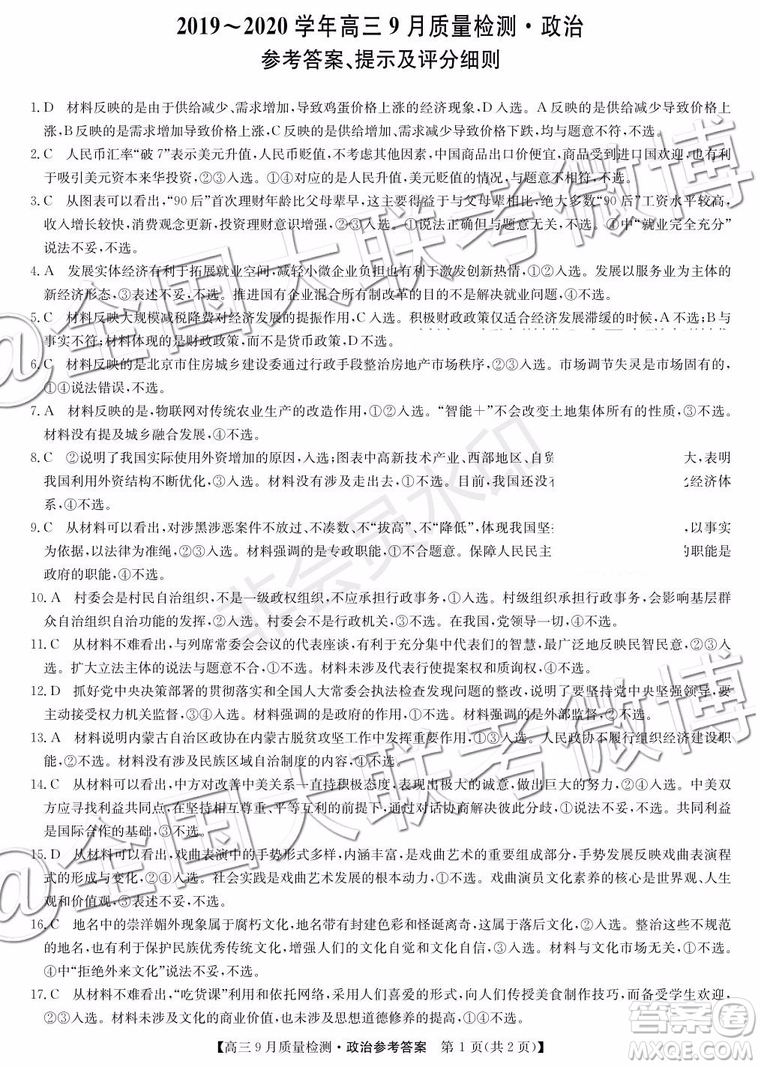 2019～2020学年高三9月质量检测·政治
参考答案、提示及评分细则
1. D 材料反映的是由于供给减少、需求增加,导致鸡蛋价格上涨的经济现象,D入选。A反映的是供给减少导致价格上
升,B反映的是需求增加导致价格上涨,C反映的是供给增加导致价格下跌,均与题意不符,不选。
2. C 人民币汇率“破7”表示美元升值,人民币贬值,不考虑其他因素,中国商品出口价便宜,商品出口到进口国欢迎,也有利
于吸引美元资本来华投资,②③入选。①④对应的是人民币升值,美元贬值的情况,与题意不符,不选。
3. C 从图表可以看出,“90后”首次理财年龄比父母辈早,这主要得益于与父母辈相比,绝大多数“90后”工资水平较高,
收入增长较快,消费观念更新,投资理财意识增强,②③入选。①说法正确但与题意无关,不选。④中“就业完全充分”
说法不妥,不选。
4. A 发展实体经济有利于拓展就业空间,减轻小微企业负担也有利于激发创新热情,①②入选。发展以服务业为主体的
新经济形态,③表述不妥,不选。目前国有企业混合所有制的改革正在推进之中,④不选。
5. C 材料反映大规模减税降费对经济发展的提振作用,C入选。积极财政政策仅适合经济发展滞缓的时候,A不选;B与
事实不符;材料体现的是财政政策,而不是货币政策,D不选。
6. C 材料反映的是北京市住房城乡建设委通过行政手段整治房地产市场秩序,②③入选。市场调节失灵是市场的弊端,
①④说法错误,不选。
7. A 材料反映的是,物联网对传统农业生产的改造作用,①②入选。“智能＋”不会改变土地集体所有的性质,③不选。
材料没有提及城乡融合发展,④不选。
8. C ②说明了我国实际使用外资增加的原因;图表中高新技术产业、西部地区、自 大,表明
我国利用外资结构不断优化,③入选。材料没有涉及走出去,①不选。目前,我国还 化经济体
系,④不选。
9. C 从材料可以看出,对涉黑涉恶案件不放过、不凑数、不“拔高”、不“降低”,体现我国坚 ,以事实
为依据,以法律为准绳,②③入选。材料强调的是专政职能,①不合题意。保障人民民 的职能是
政府的职能,④不选。
10. A 村委会是村民自治组织,不是一级政权组织,不应承担行政事务,①入选。村级组织承担行政事务,会影响基层群众
自治功能的发挥,②入选。村委会不是行政机关,③不选。在我国,党领导一切,④不选。
11. C 从材料不难看出,与列席常委会会议的代表座谈,有利于充分集中代表们的智慧,最广泛地反映民意,②③入
选。扩大立法主体的说法与题意不符,①不选。材料未涉及代表行使提案权和质询权,④不选。
12. D 抓好党中央决策部署的贯彻落实和全国人大常委会执法检查发现问题的整改,说明了要坚持党中央坚强领导,要
主动接受权力机关的监督,③④入选。①强调的是政府的作用,不选。②强调的是外部监督,不选。
13. A 材料说明内蒙古自治区政协在内蒙古脱贫攻坚工作中大有作为,①②入选。人民政协不能组织经济建设,③不选。
材料未反映民族区域自治制度的内容,④不选。
14. C 从材料可以看出,中方对改善中美关系一直持积极态度,做出巨大的努力,②④入选。中美双方
要发现利益共同点,在坚持独立自主、平等互利的前提下,通过对话协商解决彼此的分歧,①说法不妥,不选。共同利益
是国际合作的基础,③不选。
15. D 从材料可以看出,戏曲表演中的手势形式多样,内涵丰富,是戏曲艺术的重要方面,手势发展反映戏曲表演程
式的形成与变化,③④入选。戏曲艺术的魅力表现在许多方面,①不选。戏曲演员文化素养的核心是世界观、人生
观和价值观,②不选。
16. C 地名中的崇洋媚外现象属于腐朽文化,地名带有封建色彩和怪诞离奇,这属于落后文化,整治这些不规范
的地名,有利于保护民族优秀传统文化,②③入选。材料与文化多样性无关,①不选。
④中“拒绝外来文化”说法不妥,不选。
17. C 从材料可以看出,“吃货课”利用和依托网络,形式新颖,内容实用,有利于传授美食制作技巧,而受学生欢迎,
②③入选。材料没有涉及大众传媒,①不选。④表述过于绝对,不选。
【高三9月质量检测·政治参考答案 第1页(共2页)】
@全国大联考微博
@全国大联考微博
非会员水印
作业精灵